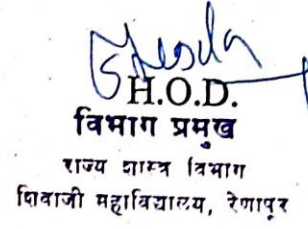 H.O.D.
विभाग प्रमुख
राज्य शास्त्र विभाग
शिवाजी महाविद्यालय, रेणापूर